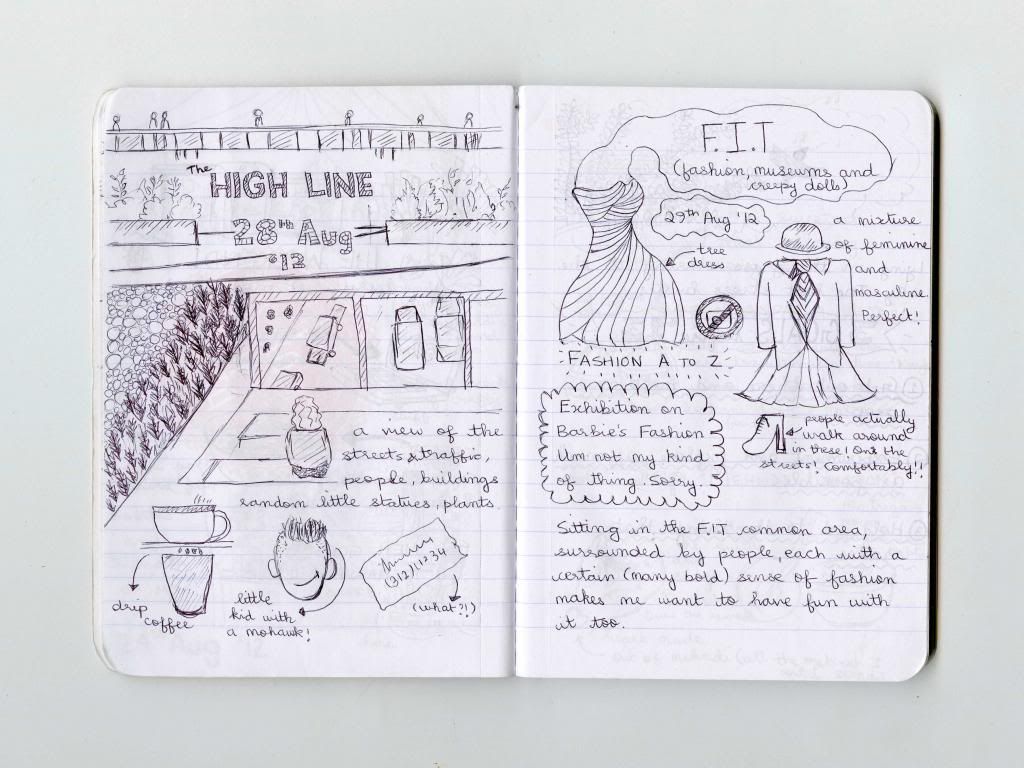 The
HIGH LINE
28th Aug
'12
a view of the
streets & traffic,
people, buildings
random little statues, plants.
drip
coffee
little
kid with
a mohawk!
(what?!)
F.I.T
(fashion, museums and
creepy dolls)
29th Aug '12
tree
dress
a mixture
of feminine
and
masculine.
Perfect!
FASHION A TO Z
Exhibition on
Barbie's Fashion
Um not my kind
of thing. Sorry.
people actually
walk around
in these! On the
streets! Comfortably!!
Sitting in the F.I.T common area,
surrounded by people, each with a
certain (many bold) sense of fashion
makes me want to have fun with
it too.